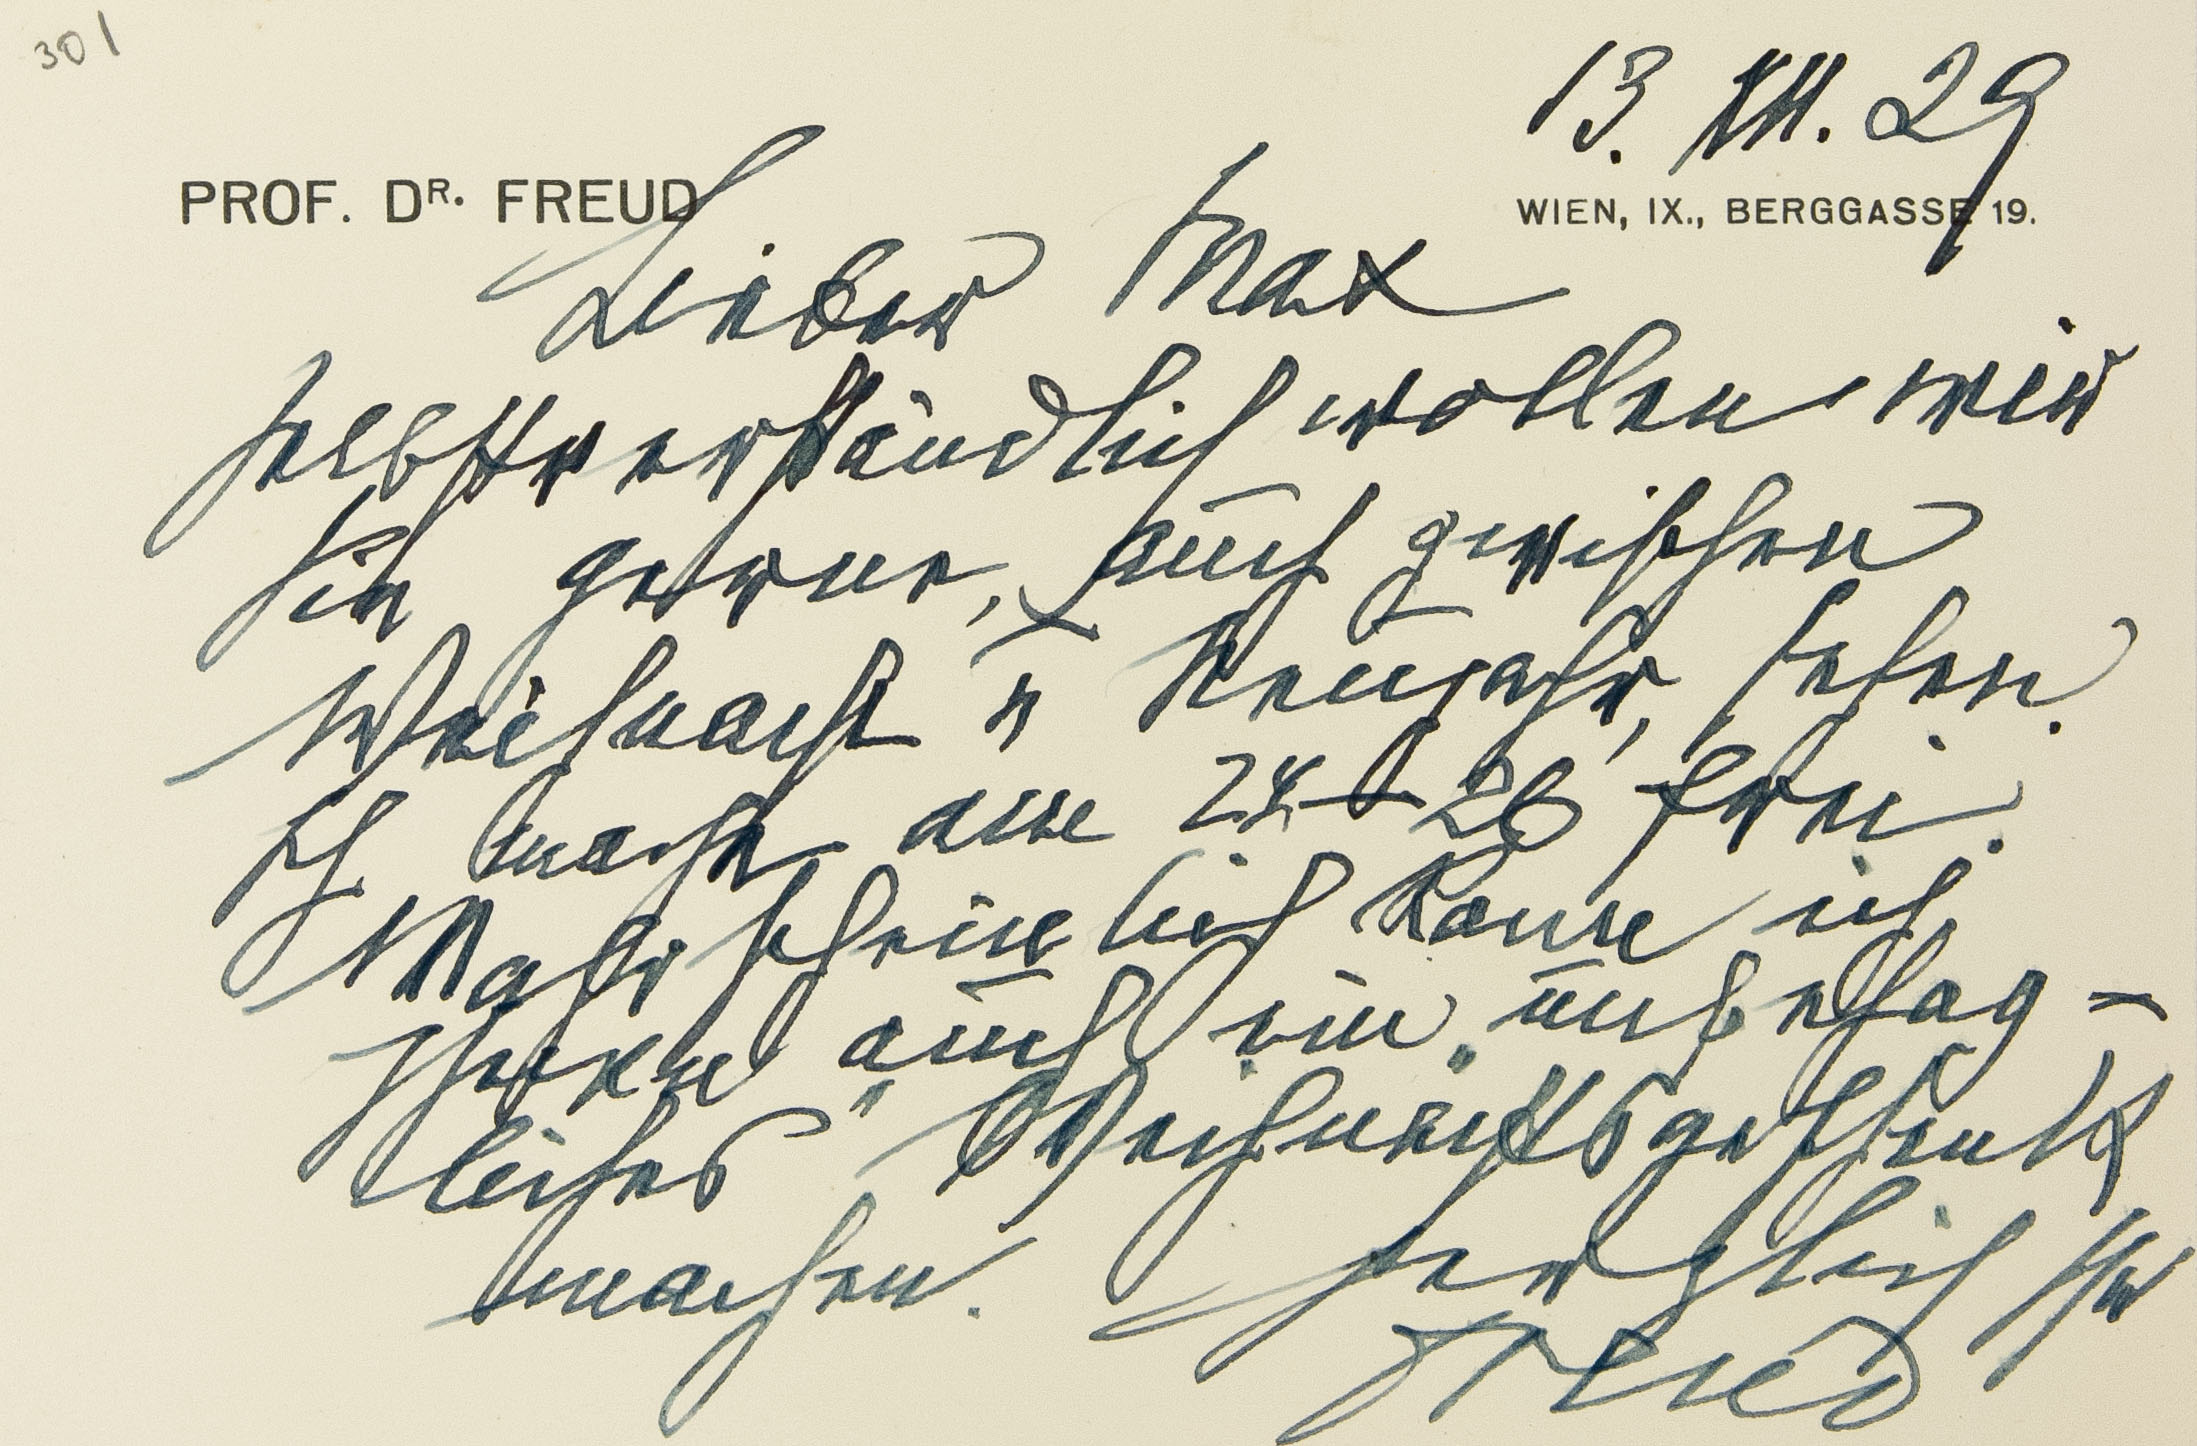 301
13. XII. 29
PROF. DR. FREUD
WIEN, IX., BERGGASSE 19.
Lieber Max
Selbstverständlich wollen wir
Sie gerne, auch zwischen
Weihnacht u Neujahr, sehen.
Ich mache 24–26 frei.
Wahrscheinlich kann ich
Ihnen auch ein „unbehag-
liches" Weihnachtsgeschenk
machen.
Herzlich Ihr
Freud